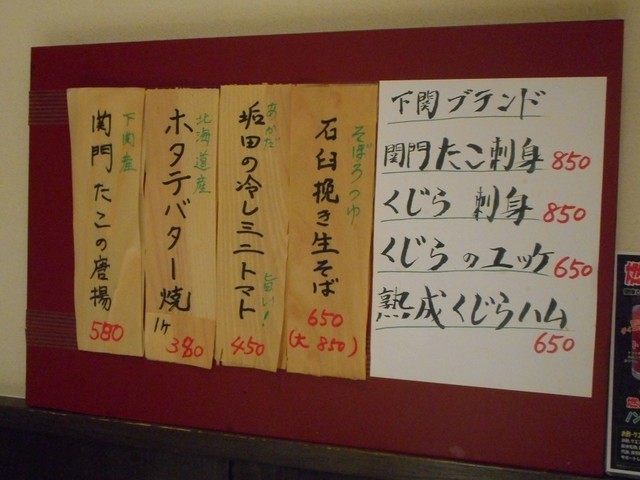 下関ブランド
関門たこ刺身 850
くじら 刺身 850
くじらのユッケ 650
熟成くじらハム
650
そぼろつゆ
石臼挽き生そば
650
(大 850)
あかだ
垢田の冷しミニトマト
旨い!
450
北海道産
ホタテバター焼
1ケ
380
下関産
関門たこの唐揚
580